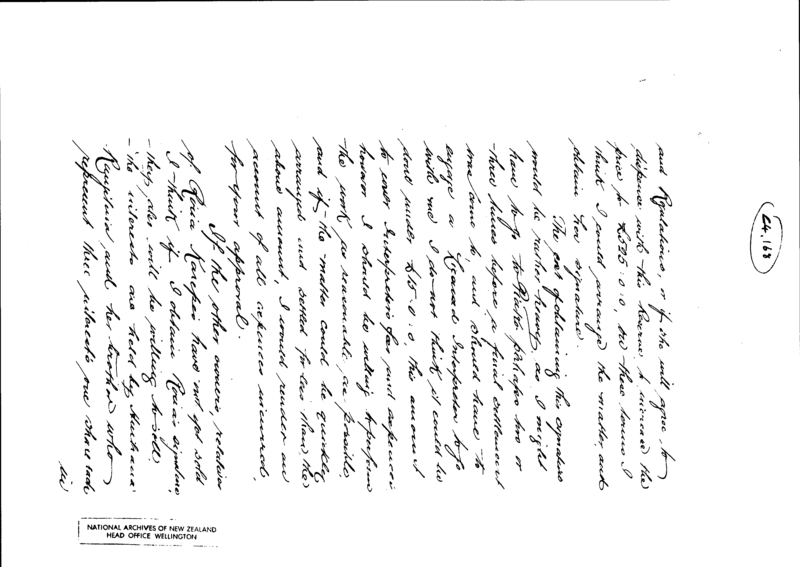 24.168
and Regulations, or if she will agree to
dispense with this Reserve & increase the
price to £525.0.0, on these terms I
think I could arrange the matter, and
obtain her signature.
The cost of obtaining this signature
would be rather heavy, as I might
have to go to perhaps two or
three times before a final settlement
was come to, and should have to
engage a Licensed Interpreter to go
with me I do not think it could be
done under £75.0.0 this amount
to cover Interpreters fees and expenses
however I should be willing to perform
the work as reasonable as possible
and if the matter could be quickly
arranged and settled for less than the
above amount, I would render an
account of all expenses incurred
for your approval.
If the other owners relation
of Raia have not yet sold
I think if I obtain Raia's signature
they also will be willing to sell
the interests are held by
and her brother who
represent their interests one share each
in
NATIONAL ARCHIVES OF NEW ZEALAND
HEAD OFFICE WELLINGTON